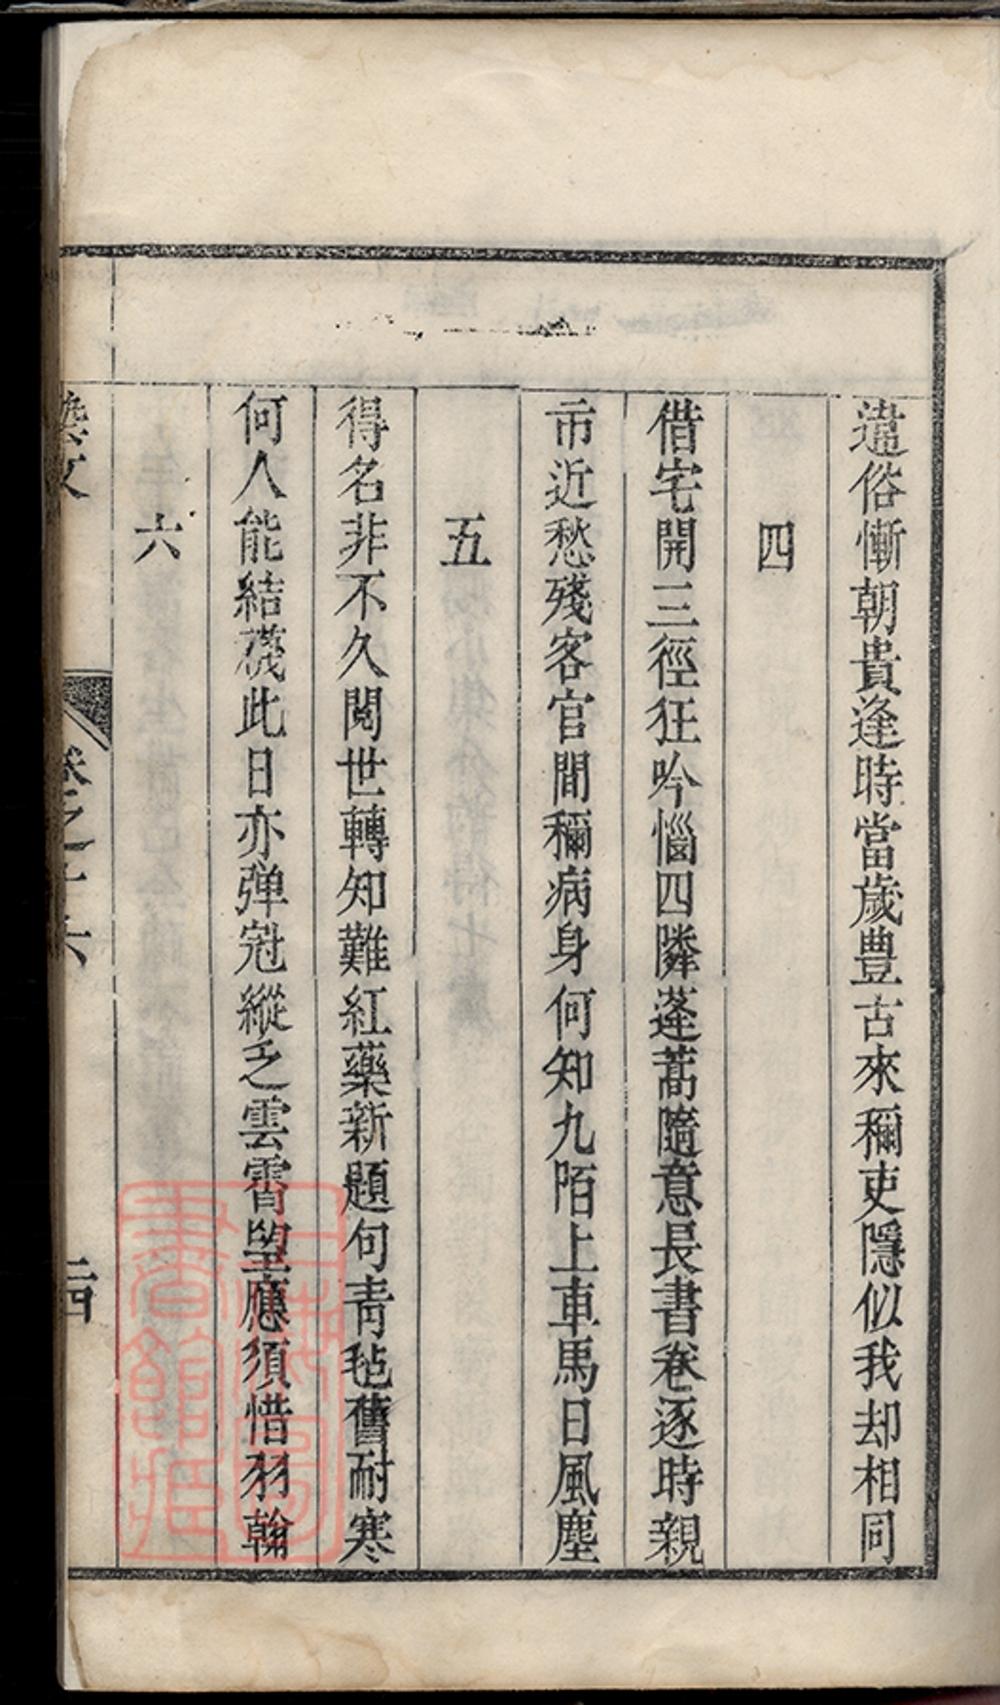 違俗慚朝貴逢時當歲豊古來稱吏隱似我却相同
四
借宅開三徑狂吟惱四隣蓬蒿隨意長書卷逐時親
市近愁殘客官間稱病身何知九陌上車馬日風塵
五
得名非不久閱世轉知難紅藥新題句青毡舊耐寒
何人能結襪此日亦弹冠縱乏雲霄望應須惜羽翰
六
卷之十六